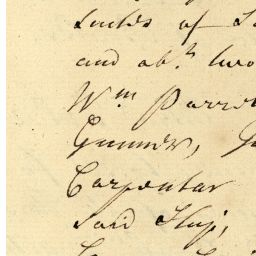 of
and abt. two
Wm Parre
Gunner,
Carpenter
said Ship,